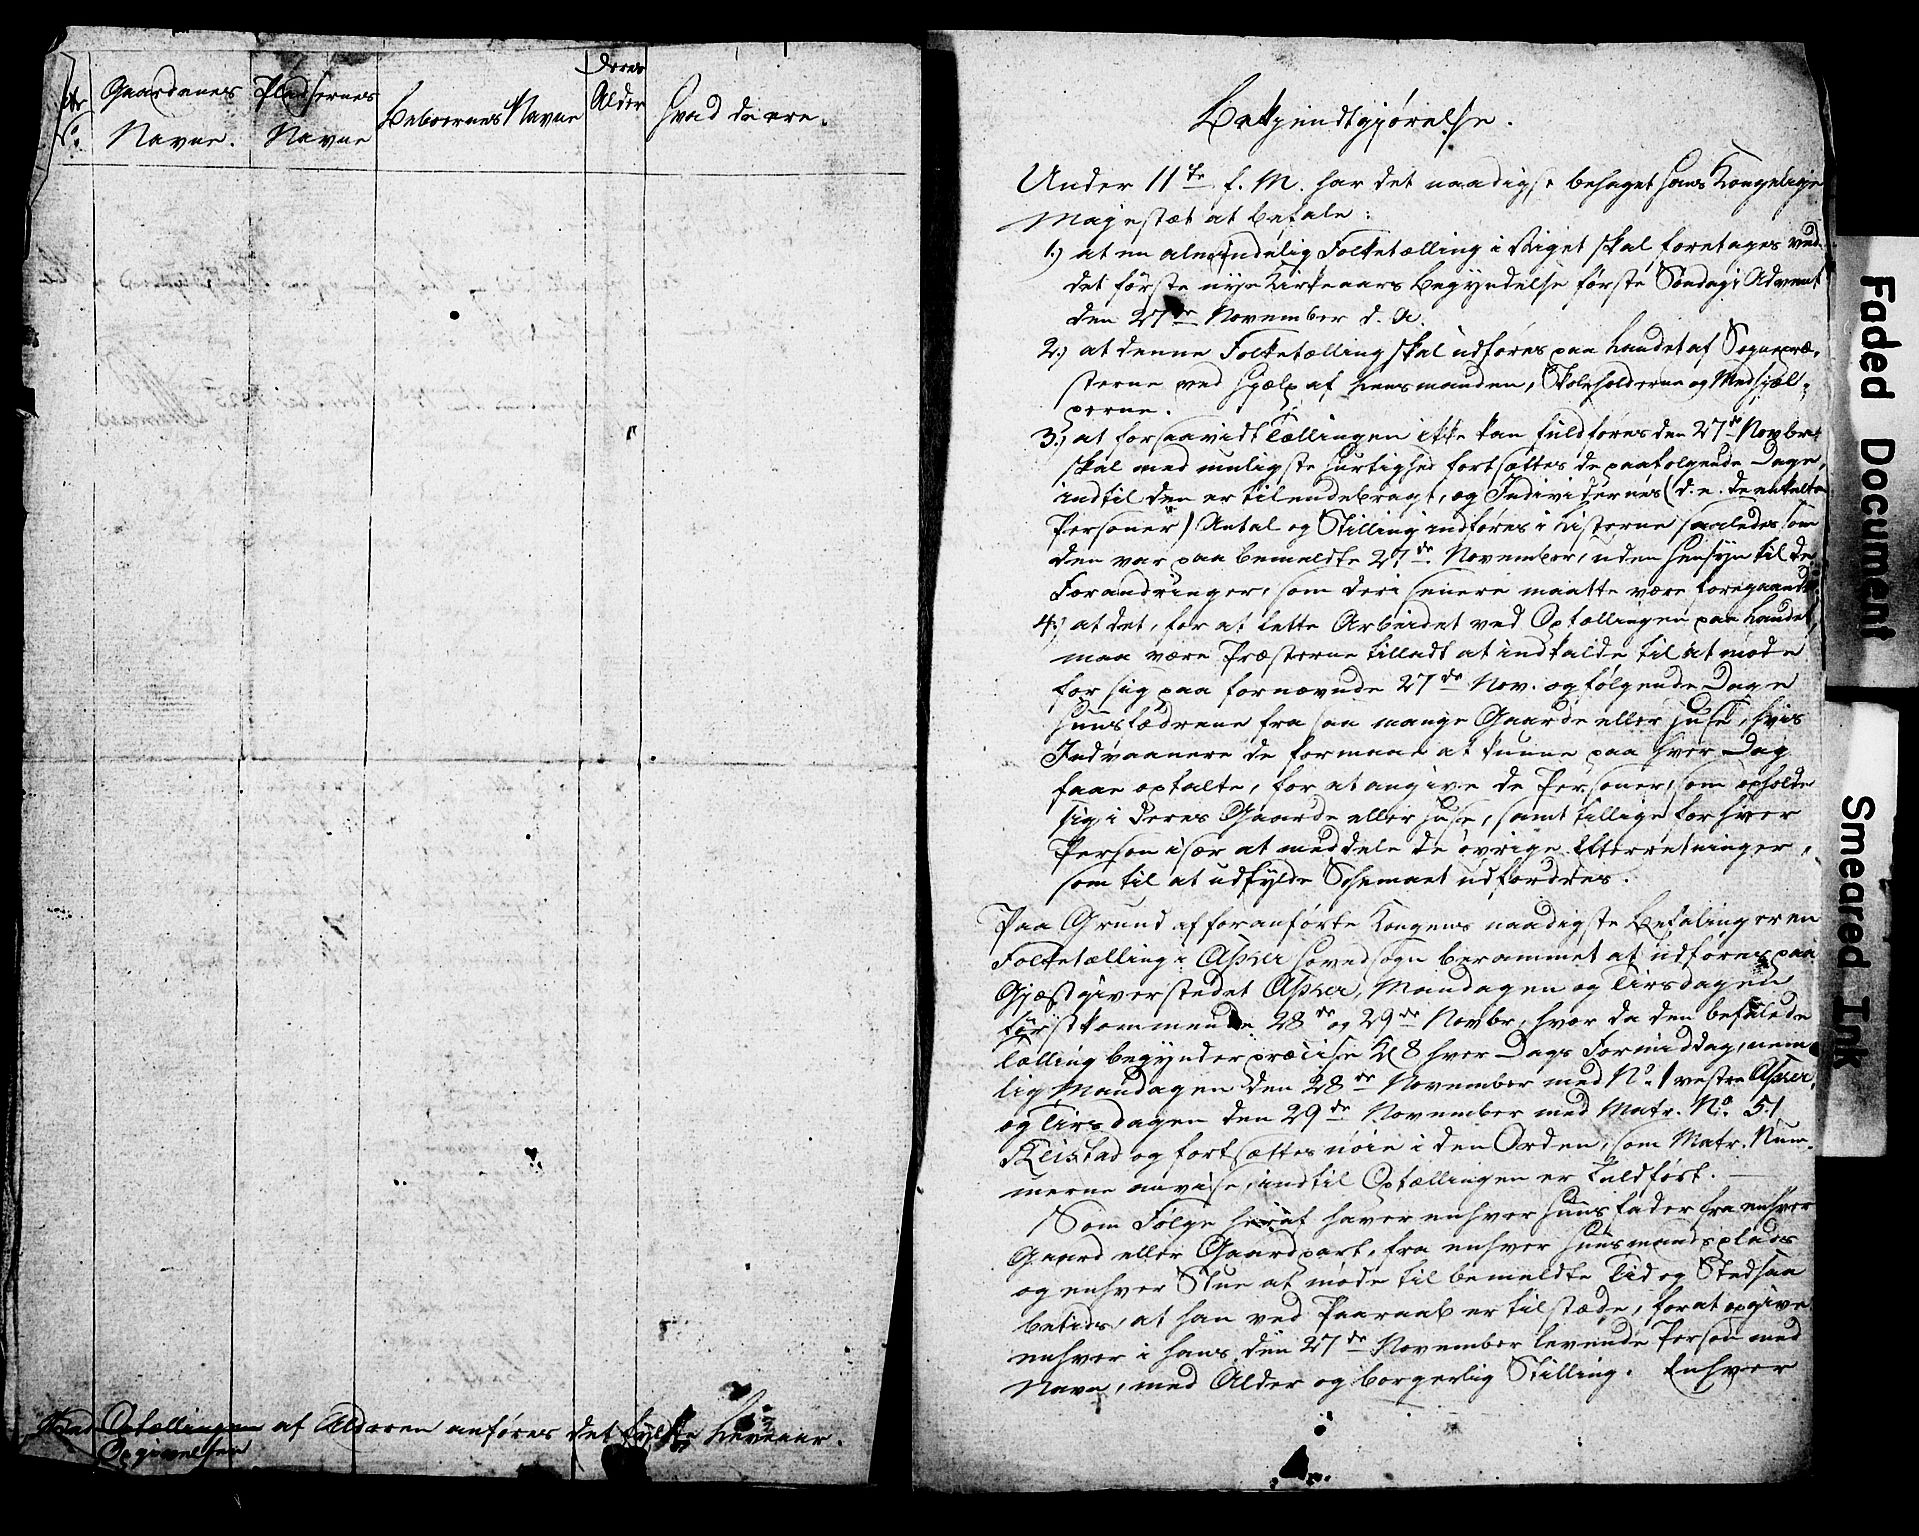 Gaardenes
Navne.
Pladsernes
Navne
Beboernes Navne
Deres
Alder
Hvad de ere.
Ved Optællingen af Alderen anføres det fylte Leveaar.
Opgivelsen
Bekjendtgjørelse.
Under 11te f. M. har det naadigst behaget Hans Kongelige
Majestæt at befale:
1.) at en almindelig Folketælling i Riget skal foretages ved
det første nye Kirkeaars Begyndelse første Søndag i Advent
den 27de November d. A.
2.) at denne Folketælling skal udføres paa Landet af Sognepræ-
sterne ved Hjælp af Lensmanden, Skoleholderne og Medhjæl-
perne.
3.) at forsaavidt Tællingen ikke kan fuldføres den 27de Novbr.
skal med muligste Hurtighed fortsættes de paafølgende Dage,
indtil den er tilendebragt, og Individernes (d. e. de enkelte
Personer) Antal og Stilling indføres i Listerne saaledes som
den var paa bemeldte 27de November, uden Hensyn til de
Forandringer, som deri senere maatte være foregaaende.
4.) at det, for at lette Arbeidet ved Optællingen paa Landet,
maa være Præsterne tilladt at indkalde til at møde
for sig paa fornævnde 27de Nov. og følgende Dage
Huusfædrene fra saa mange Gaarde eller Huse, hvis
Indvaanere de formaae at kunne paa hver Dag
faae optalte, for at angive de Personer, som opholde
sig i deres Gaarde eller Huse, samt tillige for hver
Person især at meddele de øvrige Efterretninger,
som til at udfylde Schemaet udfordres.
Paa Grund af foranførte Kongens naadigste Befaling er en
Folketælling i Asker Hovedsogn berammet at udføres paa
Gjæstgiverstedet Asker, Mandagen og Tirsdagen
førstkommende 28de og 29de Novbr, hvor da den befalede
Tælling begynder præcise Kl 8 hver Dags Formiddag, nem-
lig Mandagen den 28de November med No 1 vestre Asker,
og Tirsdagen den 29de November med Matr. No 51
Reistad og fortsættes nøie i den Orden, som Matr. Num-
merne anvise, indtil Optællingen er fuldført.
Som Følge heraf haver enhver Huusfader fra enhver
Gaard eller Gaardpart, fra enhver Huusmandsplads
og enhver Stue at møde til bemeldte Tid og Sted saa
betids, at han ved Paaraab er tilstæde, for at opgive
enhver i hans den 27de November levende Person med
Navn, med Alder og borgerlig Stilling. Enhver
Faded Document
Smeared Ink